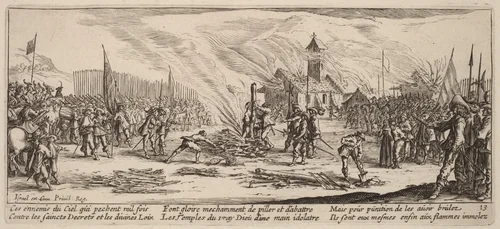 Israel ex. Cum Privil. Reg.
Ces ennemis du Ciel qui pechent mil fois
Contre les saincts Decretz et les divines Loix
Font gloire mechamment de piller et d'abattre
Les Temples du vray Dieu d'une main idolatre
Mais pour punition de les avoir brulez
Ils sont eux mesmes enfin aux flammes immolez
13